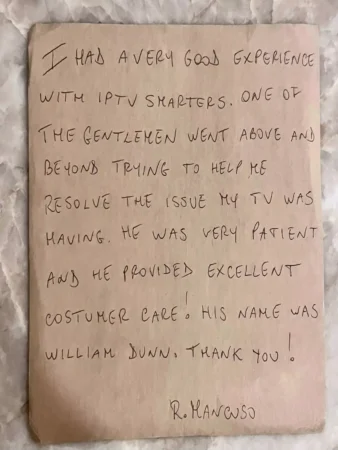 I HAD A VERY GOOD EXPERIENCE
WITH IPTV SMARTERS. ONE OF
THE GENTLEMEN WENT ABOVE AND
BEYOND TRYING TO HELP ME
RESOLVE THE ISSUE MY TV WAS
HAVING. HE WAS VERY PATIENT
AND HE PROVIDED EXCELLENT
COSTUMER CARE! HIS NAME WAS
WILLIAM DUNN. THANK YOU!
R. MANCUSO